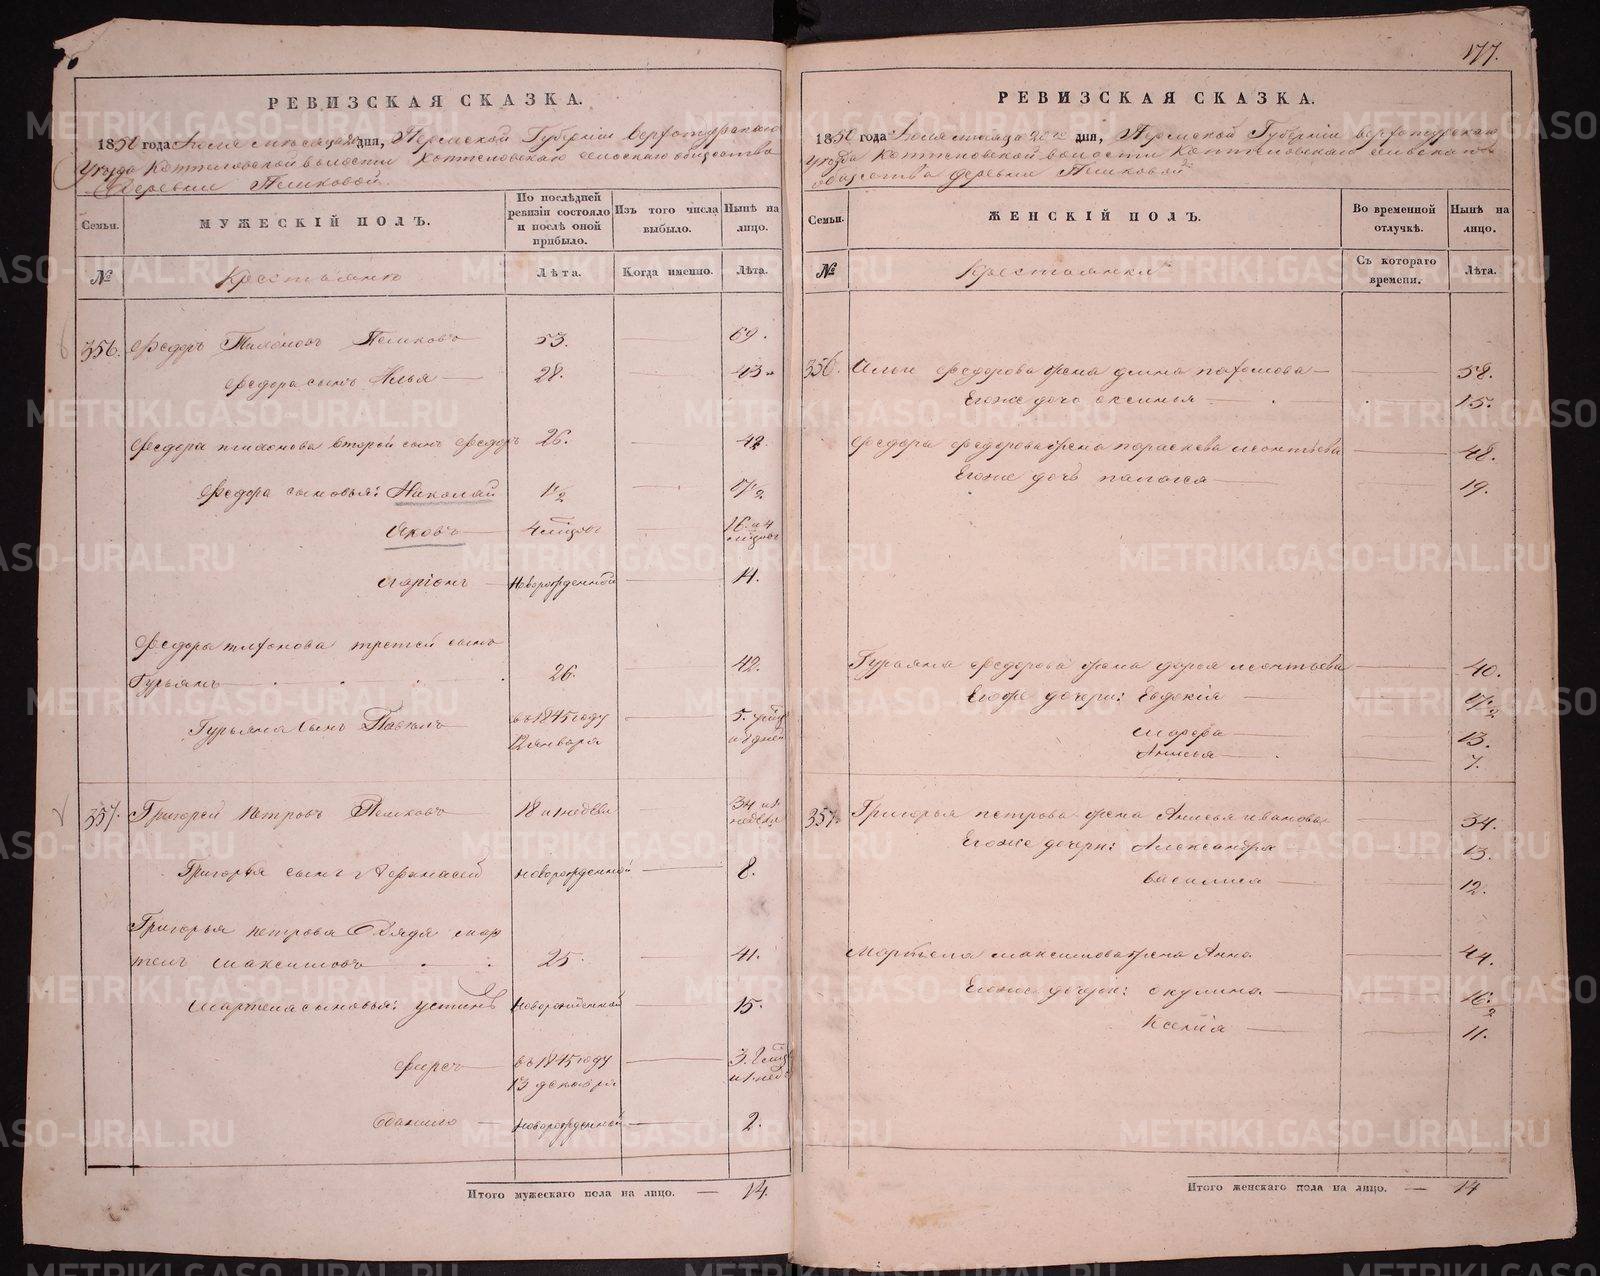 РЕВИЗСКАЯ СКАЗКА.
1850 года Июля месяца 20 дня, Пермской Губернiи Верхотурскаго
уезда Коптеловской волости Коптеловскаго сельскаго общества
Деревни Пешковой
Семьи.
МУЖЕСКIЙ ПОЛЪ.
По послѣдней ревизiи состояло и послѣ оной прибыло.
Изъ того числа выбыло.
Нынѣ на лицо.
№
Крестьянъ
Лѣта.
Когда именно.
Лѣта.
356. Федоръ Тихоновъ Пешковъ 53. 69.
Федора сынъ Илья 28. 43.
Федора тихонова второй сынъ Федоръ 26. 42.
Федора сыновья: Николай 1 1/2 17 1/2
Яковъ 4 мiсцовъ 16. и 4 мiсцовъ
Ларiонъ Новорожденной 14.
Федора тихонова третей сынъ
Гурьянъ 26. 42.
Гурьяна сынъ Павелъ въ 1845 году 12 января
357. Григорей петровъ Пешковъ 18 и недели 34 и недели
Григорья сынъ Афанасей новорожденной 8.
Григорья петрова Дядя мар
темъ максимовъ 25. 41.
Мартема сыновья: устинъ Новорожденной 15.
Фирсъ въ 1845 году 13 декабря
Данило Новорожденной 2.
Итого мужескаго пола на лицо. — 14.
177.
РЕВИЗСКАЯ СКАЗКА.
1850 года Июля месяца 20 го дня, Пермской Губернiи верхотурскаго
уезда Коптеловской волости Коптеловскаго сельскаго
общества деревни Пешковой
Семьи.
ЖЕНСКIЙ ПОЛЪ.
Во временной отлучкѣ.
Нынѣ на лицо.
№
Крестьянки
Съ котораго времени.
Лѣта.
356. Ильи федорова жена Домна пахомова 58.
Егоже дочь оксинья 15.
Федора федорова жена параскева леонтьева 48.
Егоже дочь палагея 19.
Гурьяна федорова жена дарья леонтьева 40.
Егоже дочери: Евдокiя 17 1/2
марфа 13.
Анисья 7.
357. Григорья петрова жена Анисья иванова 34.
Егоже дочери: Александра 13.
василиса 12.
мартема максимова жена Анна 44.
Егоже дочери: окулина 16 1/2
Ксенiя 11.
Итого женскаго пола на лицо. — 14
METRIKI.GASO-URAL.RU